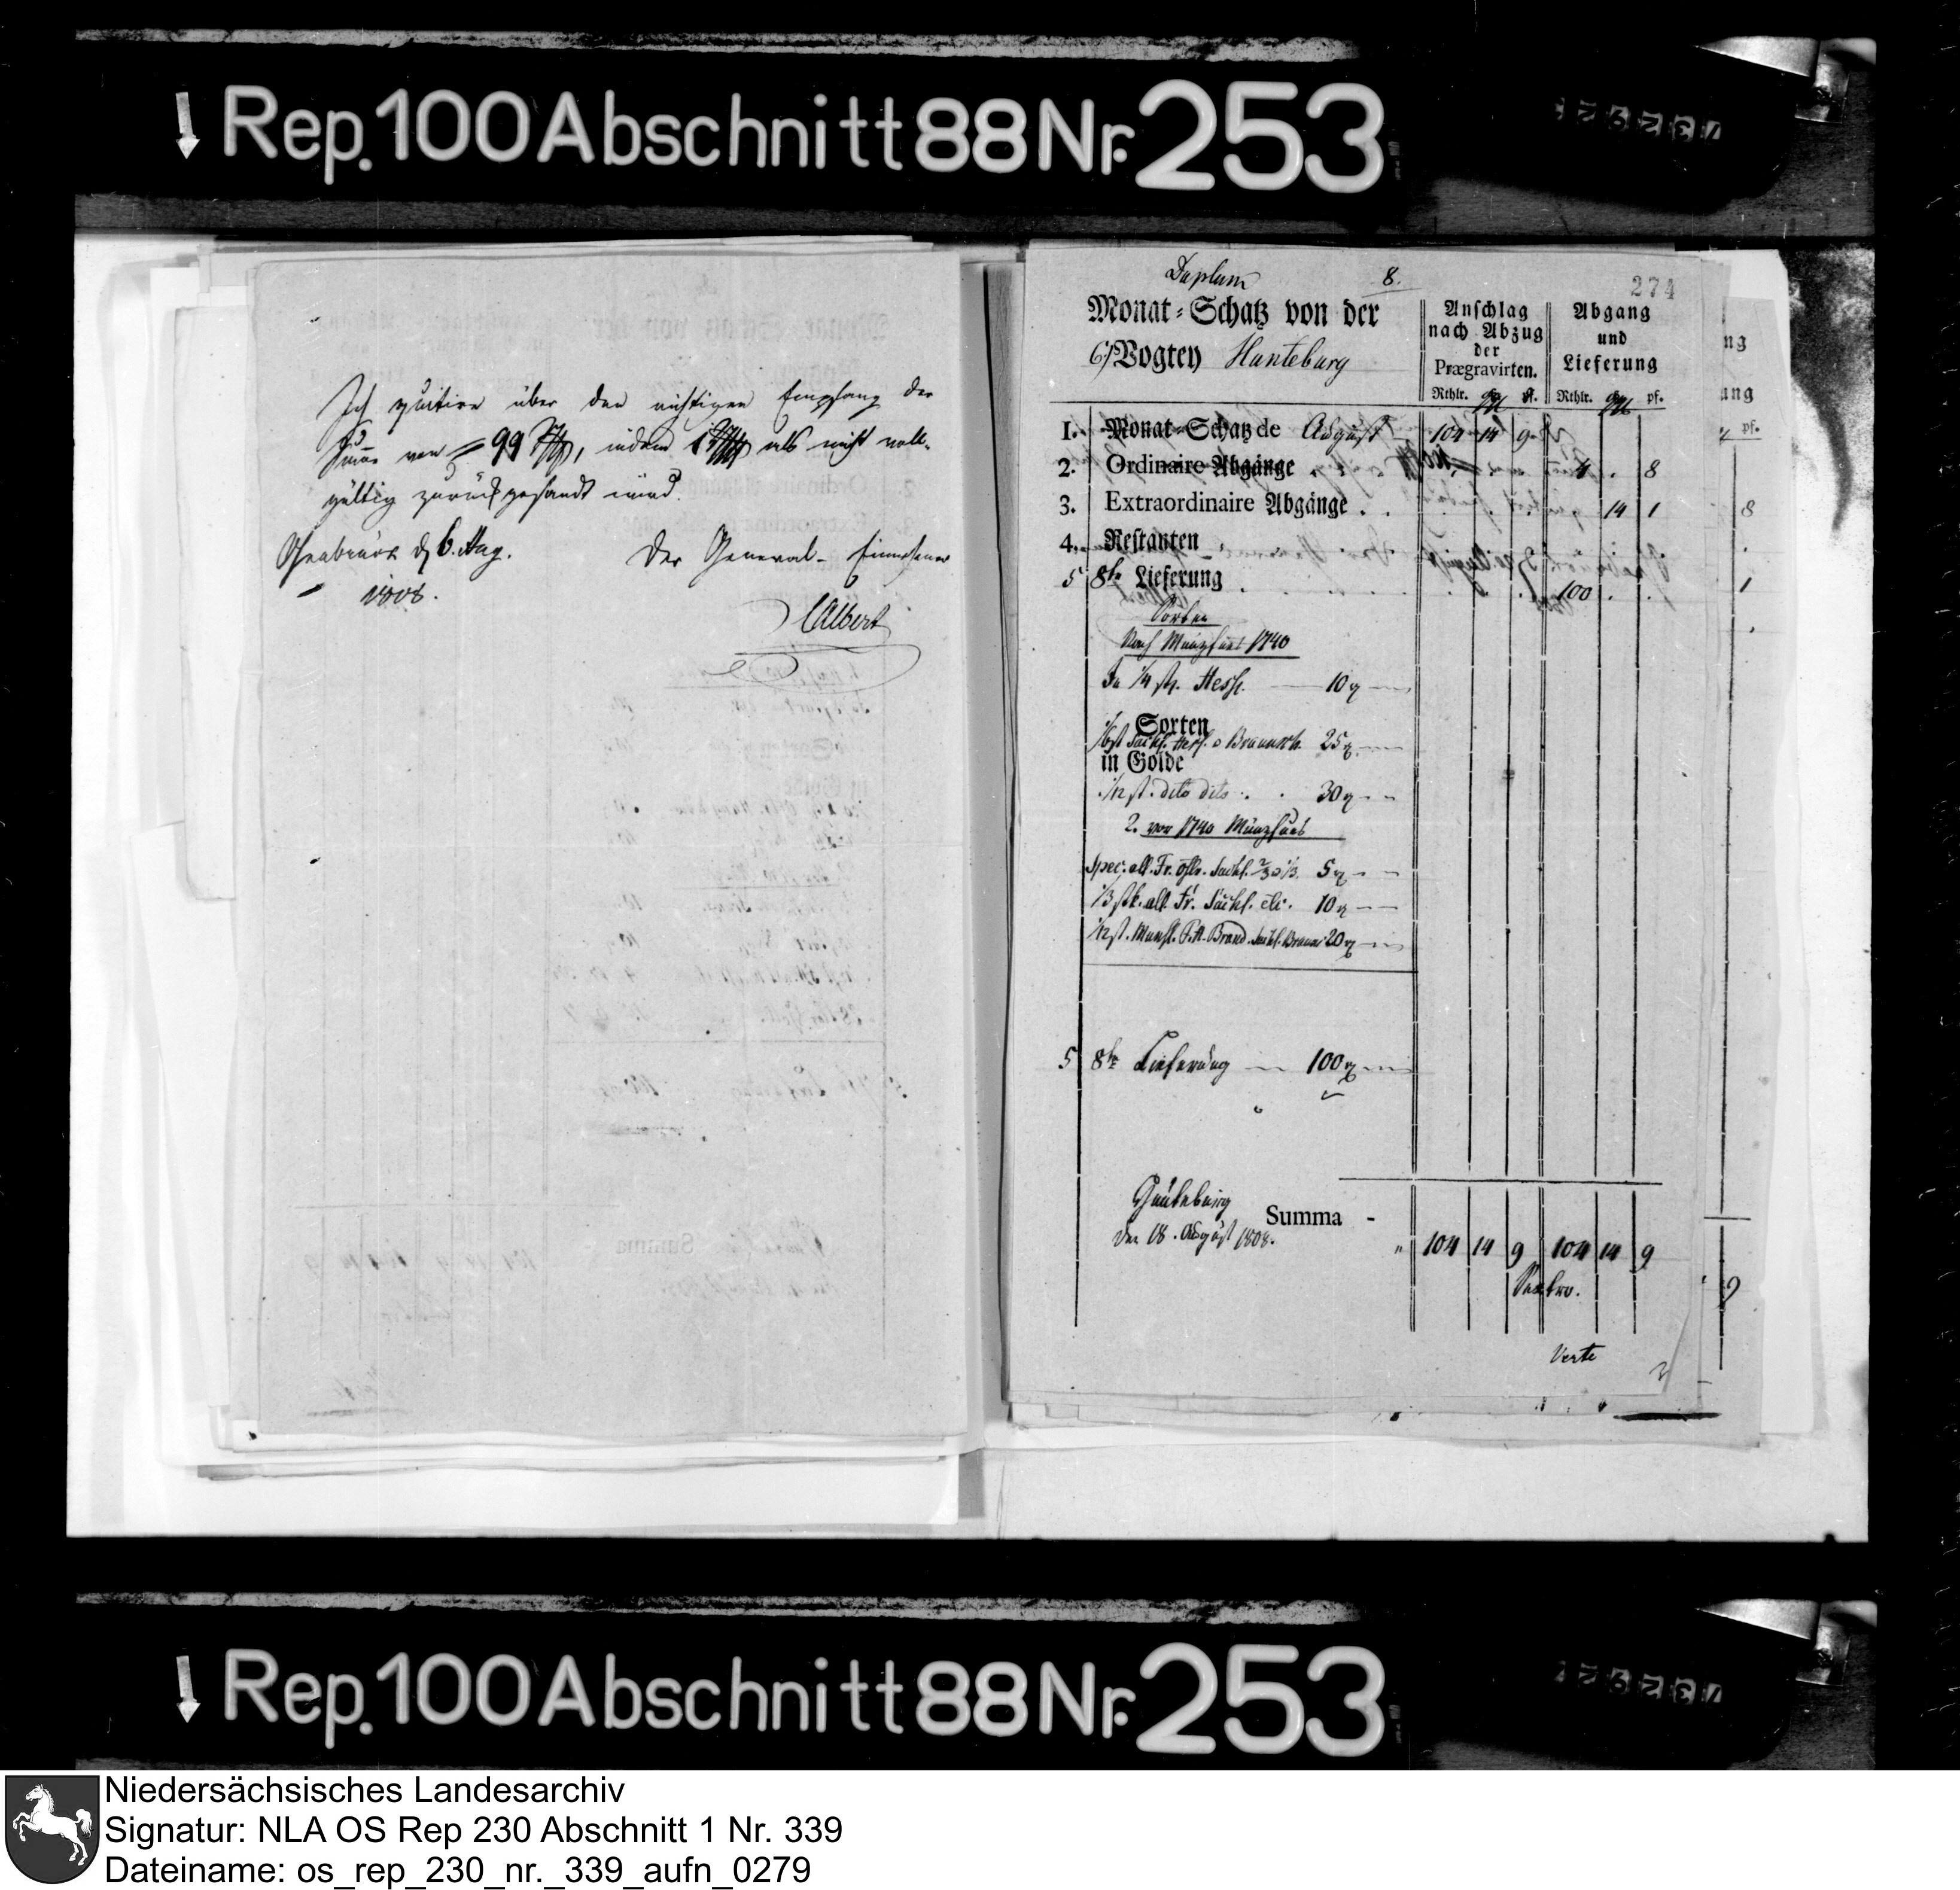 Rep. 100 Abschnitt 88 Nr. 253
Ich quitire über den richtigen Empfang der
Suma von 99 Rthlr, indem 1 Rthlr als nicht voll-
gültig zurückgesandt wird.
Osnabrück d 6. Aug. Der General-Einnehmer
1808.
CAlbert
Duplum 8.
274
Monat-Schatz von der
6/ Vogtey Hunteburg
Anschlag
nach Abzug
der
Prægravirten.
Rthlr. pf.
Abgang
und
Lieferung
Rthlr. pf.
1. Monat-Schatz de August 104 14 9
2. Ordinaire Abgänge 4 . 8
3. Extraordinaire Abgänge . . 14 1
4. Restanten
5 8te Lieferung 100 . .
Sorten
Nach Münzfues 1740
In 1/4 st. Hess. 10
Sorten
1/6 st Sächs. Hess. Braunsch. 25
in Golde
1/12 st. dito dito 30
2. vor 1740 Münzfues
Spec. alt. Fr. Sächs. 2/3 1/3 5
1/3 stk. alt Fr. Sächs. etc. 10
1/12 st. Munst. P. A. Brand. Sächs. Braun 20
5 8te Lieferung 100
Hunteburg
den 18. August 1808.
Summa - 104 14 9 104 14 9
Verte
ng
ung
pf.
8
1
9
Rep. 100 Abschnitt 88 Nr. 253
Niedersächsisches Landesarchiv
Signatur: NLA OS Rep 230 Abschnitt 1 Nr. 339
Dateiname: os_rep_230_nr._339_aufn_0279